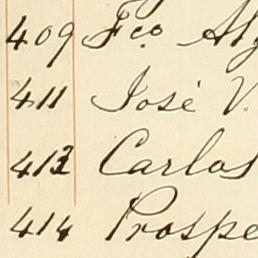 409 Fco. Al
411 José V.
413 Carlos
414 Prospe